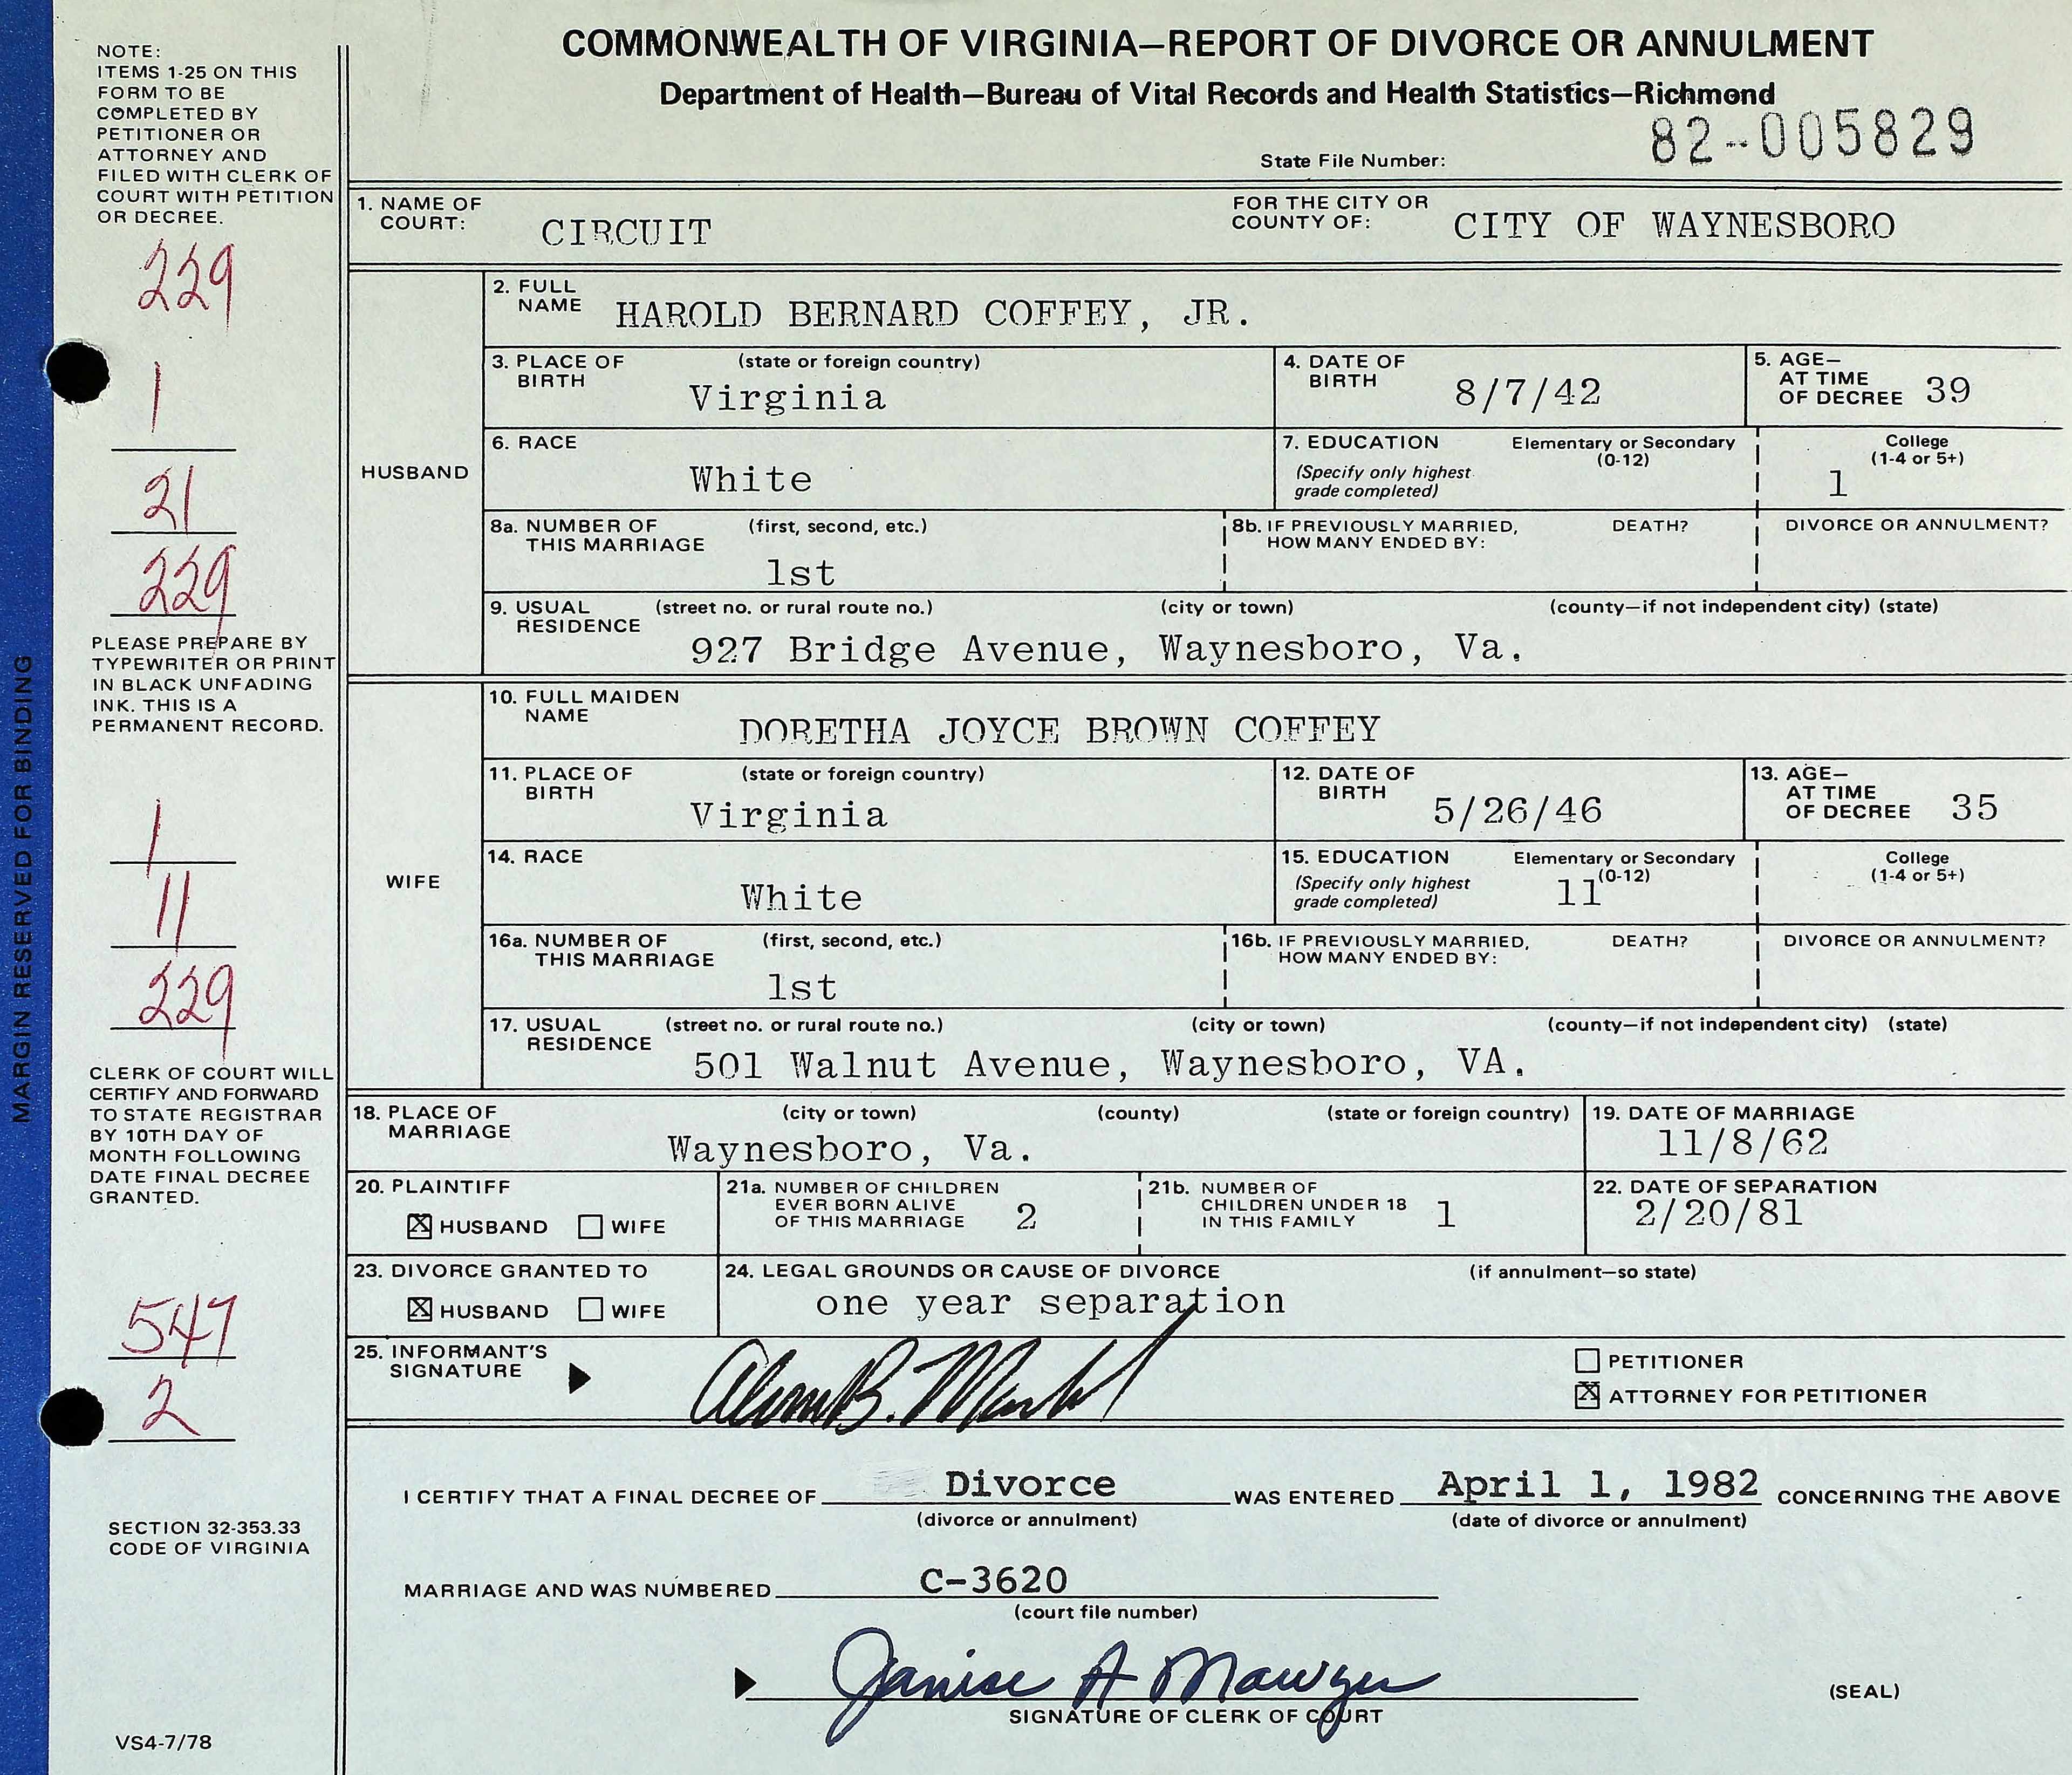 COMMONWEALTH OF VIRGINIA—REPORT OF DIVORCE OR ANNULMENT
Department of Health—Bureau of Vital Records and Health Statistics—Richmond
State File Number: 82--005829
NOTE:
ITEMS 1-25 ON THIS
FORM TO BE
COMPLETED BY
PETITIONER OR
ATTORNEY AND
FILED WITH CLERK OF
COURT WITH PETITION
OR DECREE.
229
1
21
229
PLEASE PREPARE BY
TYPEWRITER OR PRINT
IN BLACK UNFADING
INK. THIS IS A
PERMANENT RECORD.
1
11
229
CLERK OF COURT WILL
CERTIFY AND FORWARD
TO STATE REGISTRAR
BY 10TH DAY OF
MONTH FOLLOWING
DATE FINAL DECREE
GRANTED.
547
2
SECTION 32-353.33
CODE OF VIRGINIA
VS4-7/78
MARGIN RESERVED FOR BINDING
1. NAME OF COURT: CIRCUIT FOR THE CITY OR COUNTY OF: CITY OF WAYNESBORO
HUSBAND
2. FULL NAME HAROLD BERNARD COFFEY, JR.
3. PLACE OF BIRTH (state or foreign country) Virginia
4. DATE OF BIRTH 8/7/42
5. AGE— AT TIME OF DECREE 39
6. RACE White
7. EDUCATION (Specify only highest grade completed) Elementary or Secondary (0-12) College (1-4 or 5+) 1
8a. NUMBER OF THIS MARRIAGE (first, second, etc.) 1st
8b. IF PREVIOUSLY MARRIED, HOW MANY ENDED BY: DEATH? DIVORCE OR ANNULMENT?
9. USUAL RESIDENCE (street no. or rural route no.) (city or town) (county—if not independent city) (state)
927 Bridge Avenue, Waynesboro, Va.
WIFE
10. FULL MAIDEN NAME DORETHA JOYCE BROWN COFFEY
11. PLACE OF BIRTH (state or foreign country) Virginia
12. DATE OF BIRTH 5/26/46
13. AGE— AT TIME OF DECREE 35
14. RACE White
15. EDUCATION (Specify only highest grade completed) Elementary or Secondary (0-12) 11 College (1-4 or 5+)
16a. NUMBER OF THIS MARRIAGE (first, second, etc.) 1st
16b. IF PREVIOUSLY MARRIED, HOW MANY ENDED BY: DEATH? DIVORCE OR ANNULMENT?
17. USUAL RESIDENCE (street no. or rural route no.) (city or town) (county—if not independent city) (state)
501 Walnut Avenue, Waynesboro, VA.
18. PLACE OF MARRIAGE (city or town) (county) (state or foreign country) Waynesboro, Va.
19. DATE OF MARRIAGE 11/8/62
20. PLAINTIFF X HUSBAND WIFE
21a. NUMBER OF CHILDREN EVER BORN ALIVE OF THIS MARRIAGE 2
21b. NUMBER OF CHILDREN UNDER 18 IN THIS FAMILY 1
22. DATE OF SEPARATION 2/20/81
23. DIVORCE GRANTED TO X HUSBAND WIFE
24. LEGAL GROUNDS OR CAUSE OF DIVORCE (if annulment—so state)
one year separation
25. INFORMANT'S SIGNATURE B.
PETITIONER
X ATTORNEY FOR PETITIONER
I CERTIFY THAT A FINAL DECREE OF Divorce WAS ENTERED April 1, 1982 CONCERNING THE ABOVE
(divorce or annulment) (date of divorce or annulment)
MARRIAGE AND WAS NUMBERED C-3620
(court file number)
Janise A Mawyer
SIGNATURE OF CLERK OF COURT
(SEAL)